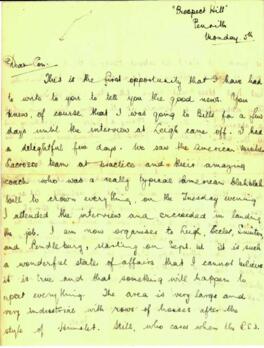 "Prospect Hill"
Penrith
Monday 5th.
Dear Con,
This is the first opportunity that I have had
to write to you to tell you the good news. You
knew, of course that I was going to Bills for a few
days until the interview at Leigh came off. I had
a delightful five days. We saw the American
Lacrosse team at practice and their amazing
coach who was a really typical American
to crown everything, on the Tuesday evening
I attended the interview and succeeded in landing
the job. I am now organiser to Leigh, Eccles, Swinton
and Pendlebury, starting on Sept. 1st it is such
a wonderful state of affairs that I cannot believe
it is true and that something will happen to
upset everything. The area is very large and
very industrial with rows of houses after the
style of Still, who cares when the